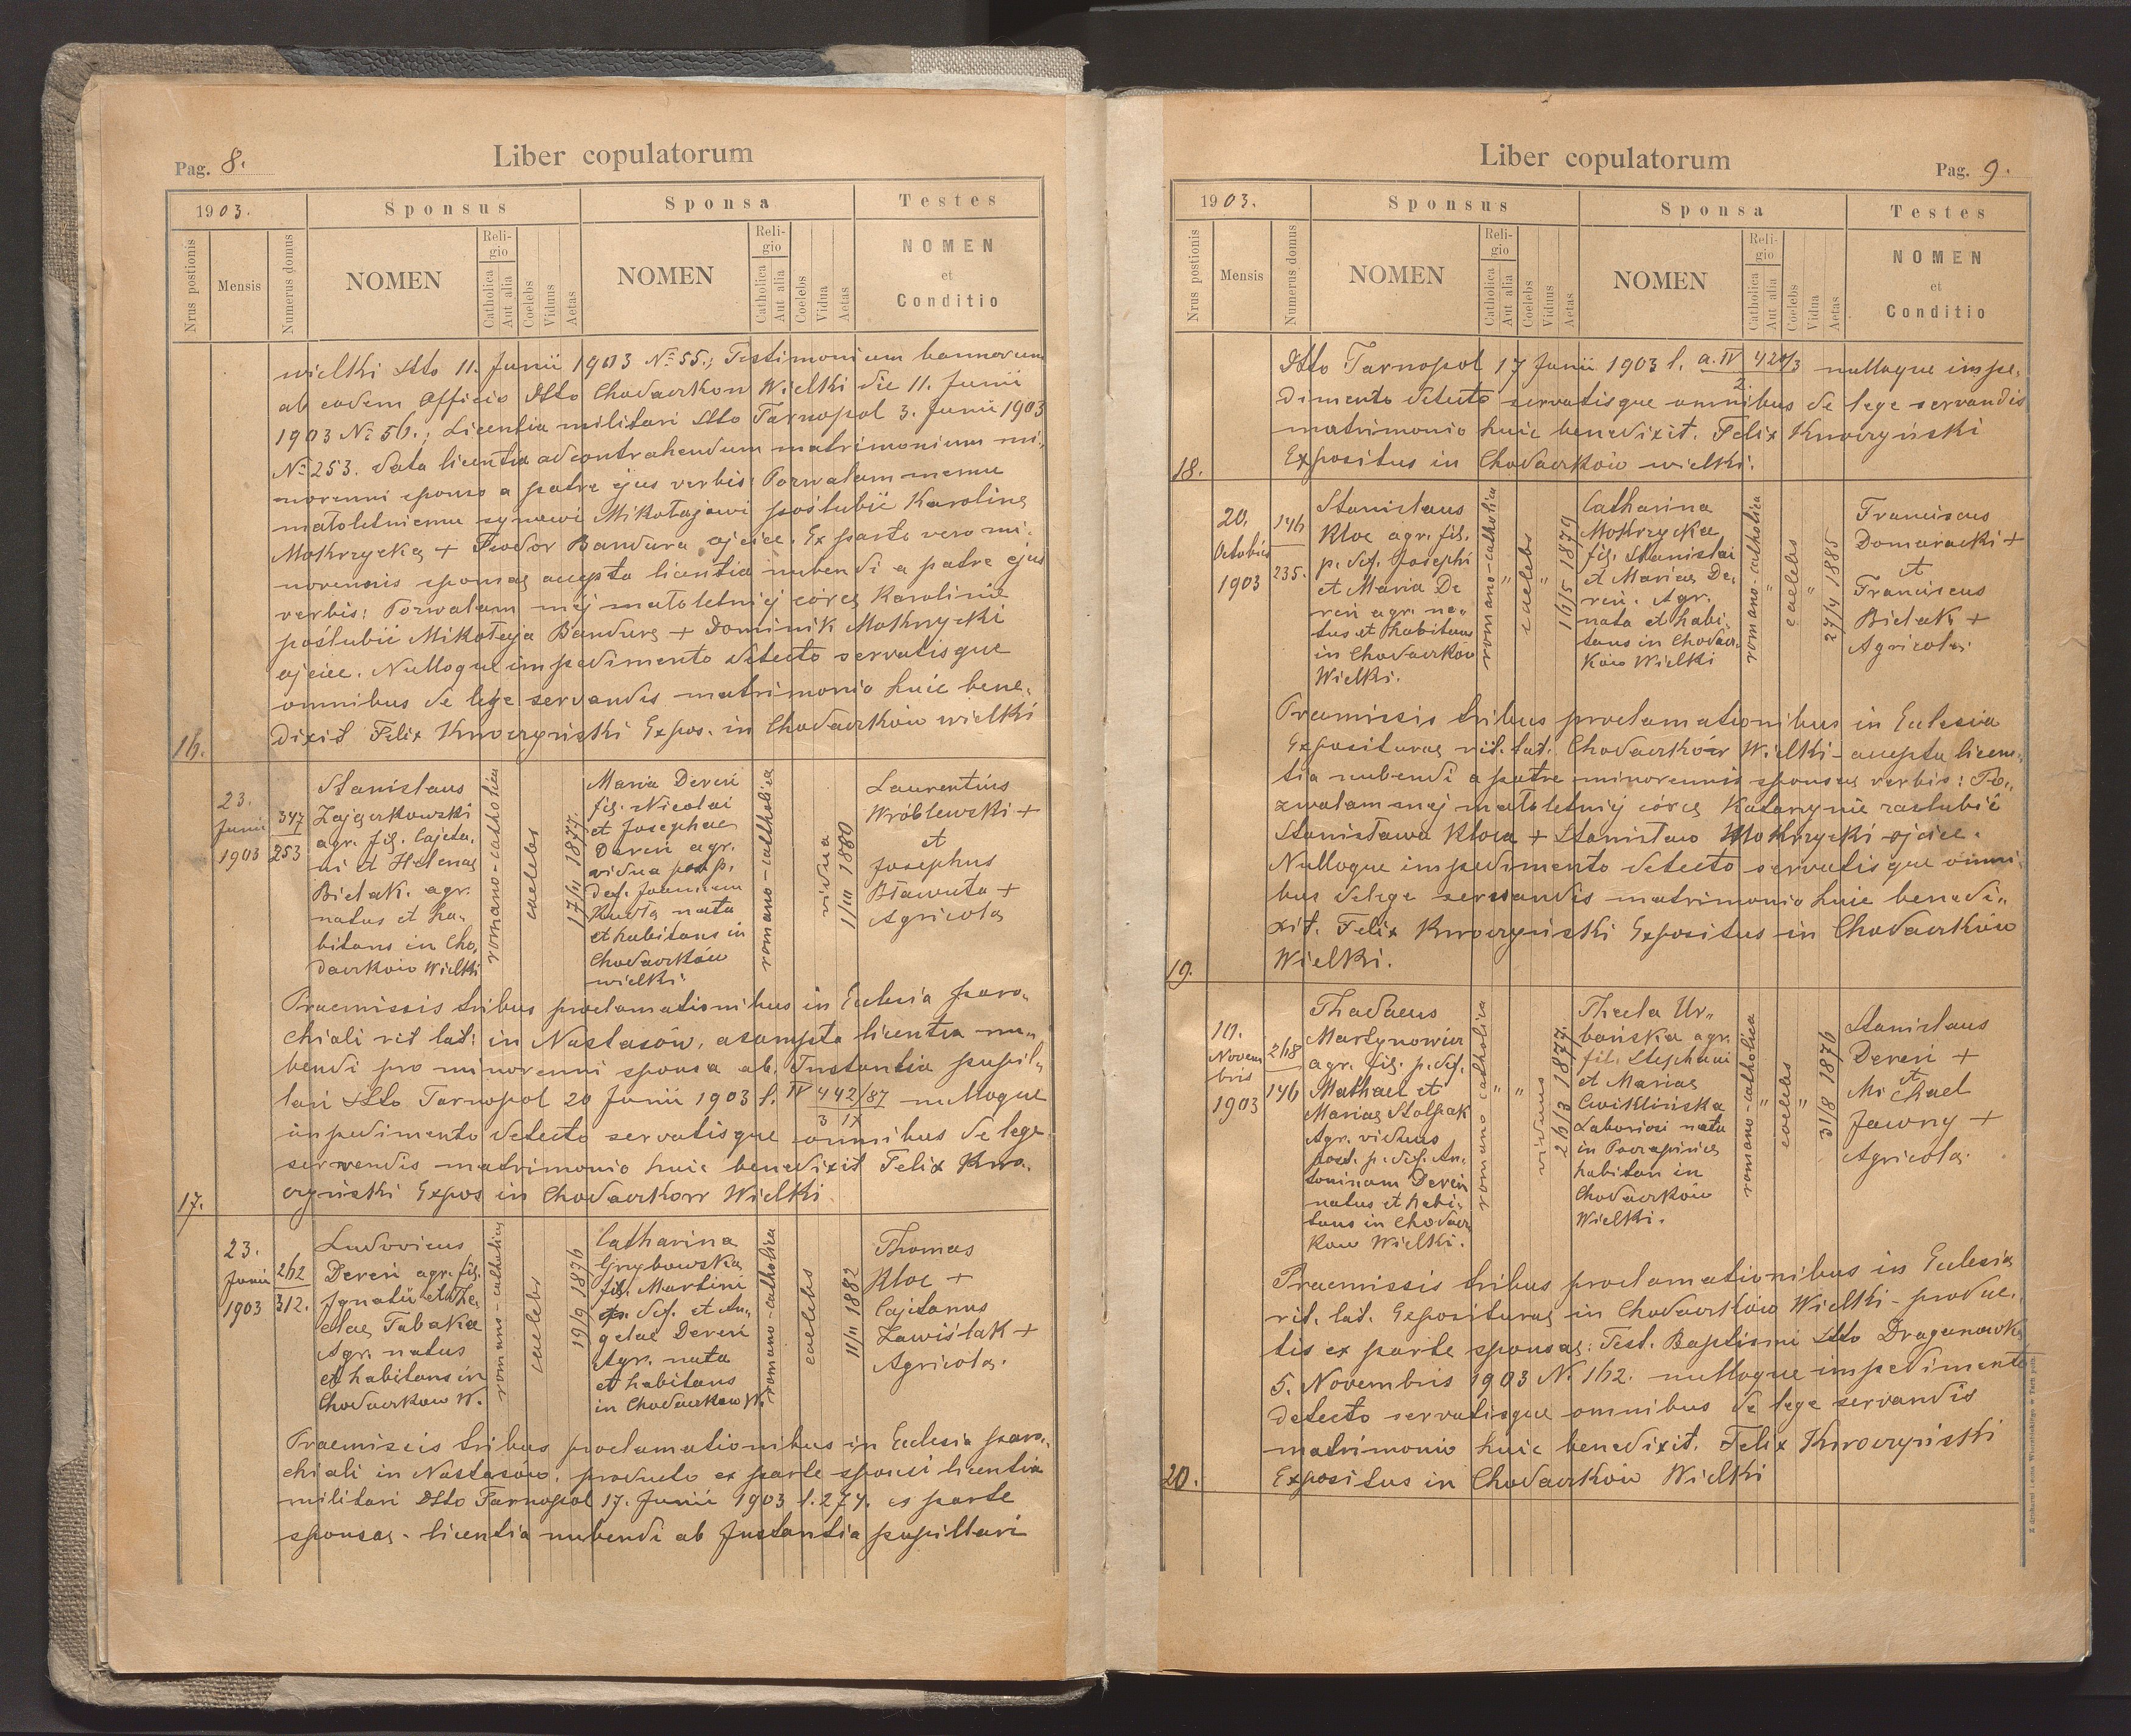 Pag. 8.
Liber copulatorum
1903.
Sponsus
Sponsa
Testes
Nrus postionis
Mensis
Numerus domus
NOMEN
Religio
Catholica
Aut alia
Coelebs
Viduus
Aetas
NOMEN
Religio
Catholica
Aut alia
Coelebs
Vidua
Aetas
NOMEN
et
Conditio
wielki dtto 11. Junii 1903 № 55.; Testimonium bannorum
ab eodem Officio dtto Chodaczkow Wielki die 11. Junii
1903 № 56.; Licentia militari dtto Tarnopol 3. Junii 1903
№ 253. data licentia ad contrahendum matrimonium mi-
norenni sponso a patre ejus verbis: Pozwalam memu
małoletniemu synowi Mikołajowi poślubić Karolinę
Mokrzycką + Teodor Bandura ojciec. Ex parte vero mi-
norennis sponsae accepta licentia nubendi a patre ejus
verbis: Pozwalam mej małoletniej córce Karolinie
poślubić Mikołaja Bandurę + Dominik Mokrzycki
ojciec. Nulloque impedimento detecto servatisque
omnibus de lege servandis matrimonio huic bene-
dixit Felix Kwoczyński Expos. in Chodaczków wielki
16.
23.
Junii
1903
347
253
Stanislaus
Zajączkowski
agr. fil. Cajeta-
ni et Helenae
Bielak. agr.
natus et ha-
bitans in Cho-
daczków Wielki
romano-catholica
caelebs
17/11 1877.
Maria Dereń
fil. Nicolai
et Josephae
Dereń agr.
vidua post p.
def. Joannem
nata
et habitans in
Chodaczków
wielki
romano-catholica
vidua
1/III 1880
Laurentius
Wróblewski +
et
Josephus
Bławuta +
Agricolae
Praemissis tribus proclamationibus in Ecclesia paro-
chiali rit lat: in Nastasów, asumpta licentia nu-
bendi pro minorenni sponsa ab. Instantia pupil-
lari dtto Tarnopol 20 Junii 1903 l. IV 442/87 nulloque
3 17
impedimento detecto servatisque omnibus de lege
servendis matrimonio huic benedixit Felix Kwo-
czyński Expos in Chodaczkow Wielki
17.
23.
Junii
1903
262
312.
Ludovicus
Dereń agr. fil.
Ignatii et The-
clae Tabaka
Agr. natus
et habitans in
Chodaczkow W.
romano-catholica
caelebs
19/9 1876
Catharina
Grzybowska
fil. Martini
p. def. et An-
gelae Dereń
Agr. nata
et habitans
in Chodaczkow W.
romano-catholica
caelebs
11/11 1882
Thomas
Kloc +
Cajetanus
Zawiślak +
Agricolae.
Praemissis tribus proclamationibus in Ecclesia paro-
chiali in Nastasów, producto ex parte sponsi licentia
militari Dtto Tarnopol 17. Junii 1903 l. 274. es parte
sponsae - licentia nubendi ab Instantia pupillari
Pag. 9.
Liber copulatorum
1903.
Sponsus
Sponsa
Testes
Nrus postionis
Mensis
Numerus domus
NOMEN
Religio
Catholica
Aut alia
Coelebs
Viduus
Aetas
NOMEN
Religio
Catholica
Aut alia
Coelebs
Vidua
Aetas
NOMEN
et
Conditio
dtto Tarnopol 17 Junii 1903 l. a. IV 420/3 nulloque impe-
2
dimento detecto servatisque omnibus de lege servandis
matrimonio huic benedixit. Felix Kwoczyński
Expositus in Chodaczków wielki.
18.
20.
Octobris
1903
146
235.
Stanislaus
Kloc agr. fil.
p. def. Josephi
et Maria De
reń agr. na-
tus et habitans
in Chodaczków
Wielki.
romano-catholica
"
caelebs
"
16/5 1879
Catharina
Mokrzycka
fil. Stanislai
et Mariae De-
reń. Agr.
nata et habi-
tans in Chodacz-
ków Wielki
romano-catholica
"
caelebs
"
27/4 1885
Franciscus
Domaracki +
et
Franciscus
Bielak +
Agricolae.
Praemissis tribus proclamationibus in Ecclesia
Expositurae rit. lat. Chodaczków Wielki - accepta licen-
tia nubendi a patre minorennis sponsae verbis: Po-
zwalam mej małoletniej córce Katarzynie zaślubić
Stanisława Kloca + Stanisław Mokrzycki - ojciec.
Nulloque impedimento detecto servatisque omni-
bus delege servandis matrimonio huic benedi-
xit. Felix Kwoczyński Expositus in Chodaczków
Wielki.
19.
10.
Novem
bris
1903
268
146
Thadaeus
Martynowicz
agr. fil. p. def.
Mathaei et
Mariae Stolpak
Agr. viduus
post. p. def. An-
toninam Dereń
natus et habi-
tans in Chodacz
kow Wielki.
romano catholica
"
"
viduus
26/3 1877.
Thecla Ur-
bańska agr.
fil. Stephani
et Mariae
Cwiklińska
Laboriosi nata
in
habitan in
Chodaczków
Wielki.
romano-catholica
"
caelebs
"
31/8 1876
Stanislaus
Dereń +
et
Michael
Jawny +
Agricolae.
Praemissis tribus proclamationibus in Ecclesia
rit. lat. Expositurae in Chodaczków Wielki - produc-
tis ex parte sponsae: Test. Baptismi dtto Draganowka
5. Novembris 1903 N. 162. nulloque impedimento
detecto servatisque omnibus de lege servandis
matrimonio huic benedixit. Felix Kwoczyński
Expositus in Chodaczków Wielki
20.